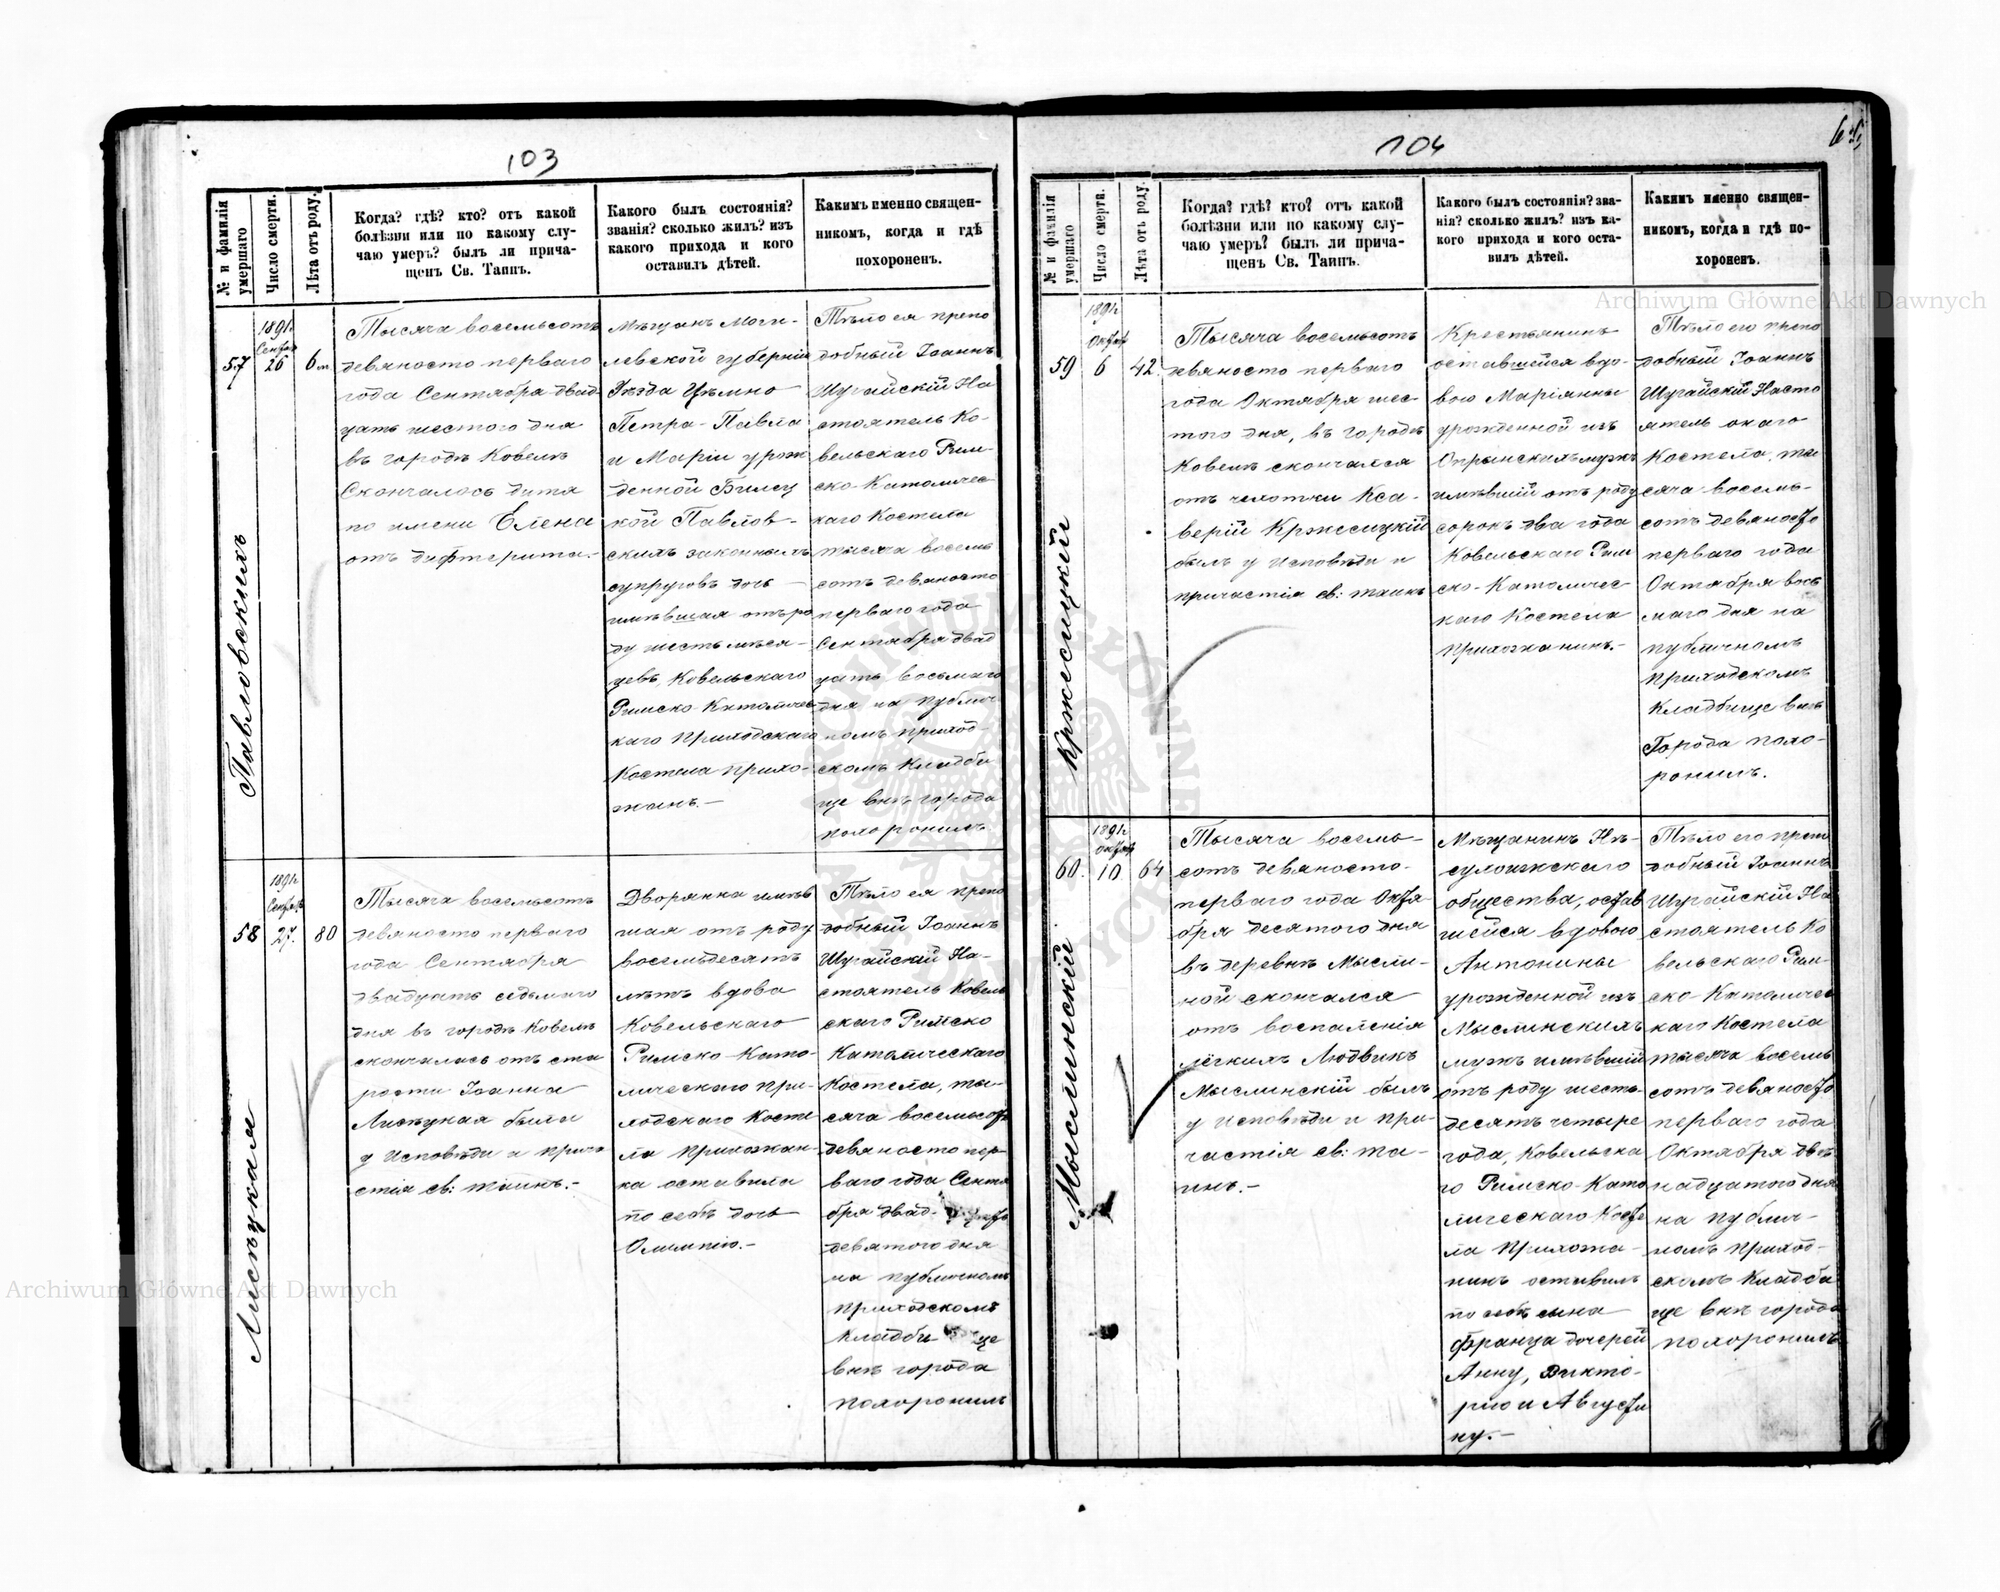 103
№ и фамилія умершаго
Число смерти.
Лѣта отъ роду.
Когда? гдѣ? кто? отъ какой
болѣзни или по какому слу-
чаю умеръ? былъ ли прича-
щенъ Св. Таинъ.
Какого былъ состоянія?
званія? сколько жилъ? изъ
какого прихода и кого
оставилъ дѣтей.
Какимъ именно священ-
никомъ, когда и гдѣ
похороненъ.
57
Павловскихъ
1891г.
26
6 м
Тысяча восемьсотъ
девяносто перваго
года Сентября двад
цать шестого дня
въ городѣ Ковелѣ
Скончалось дитя
по имени Елена
отъ дифтерита.-
Мѣщанъ Моги-
левской губерніи
Уѣзда
Петра-Павла
и Маріи урж
денной
Павлов-
скихъ законныхъ
супруговъ дочь -
имѣвшая отъ ро
ду шесть мѣся-
цевъ, Ковельскаго
Римско-Католичес
каго Приходскаго
Костела прихо-
жанъ.-
Тѣло ея препо
добный Іоаннъ
Шугайскій На
стоятель Ко-
вельскаго Рим-
ско-Католичес
каго Костела
тысяча восемь
сотъ девяносто
перваго года
Сентября двад
цать восьмаго
дня на публич-
номъ приход-
скомъ кладби
ще внѣ города
похоронилъ
58
Лисѣцкая
1891г.
27.
80
Тысяча восемьсотъ
девяносто перваго
года Сентября
двадцать седьмаго
дня въ городѣ Ковелѣ
скончалась отъ ста
рости Іоанна
Лисѣцкая была
у Исповѣди и прича
стія св: таинъ.-
Дворянка имѣв
шая отъ роду
восемьдесятъ
лѣтъ вдова
Ковельскаго
Римско-Като-
лическаго при-
ходскаго Косте
ла прихожан-
ка оставила
по себѣ дочь
Олимпію.-
Тѣло ея препо
добный Іоаннъ
Шугайскій На-
стоятель Ковель
скаго Римско
Католическаго
Костела, ты-
сяча восемьсотъ
девяносто пер-
ваго года Сентя
бря двад-
девятого дня
на публичномъ
приходскомъ
кладби ще
внѣ города
похоронилъ
104
№ и фамилія умершаго
Число смерти.
Лѣта отъ роду.
Когда? гдѣ? кто? отъ какой
болѣзни или по какому слу-
чаю умеръ? былъ ли прича-
щенъ Св. Таинъ.
Какого былъ состоянія? зва-
нія? сколько жилъ? изъ ка-
кого прихода и кого оста-
вилъ дѣтей.
Какимъ именно священ-
никомъ, когда и гдѣ по-
хороненъ.
59
Кржесицкій
1891г.
6
42.
Тысяча восемьсотъ
девяносто перваго
года Октября шес
того дня, въ городѣ
Ковелѣ скончался
отъ чехотки Кса-
верій Кржесицкій
былъ у исповѣди и
причастія св: таинъ
Крестьянинъ
оставшейся вдо-
вою Маріанны
урожденной изъ
мужъ
имѣвшій отъ роду
сорокъ два года
Ковельскаго Рим
ско-Католичес
каго Костела
прихожанинъ.-
Тѣло его препо
добный Іоаннъ
Шугайскій Насто
ятель онаго
Костела, ты
сяча восемь-
сотъ девяносто
перваго года
Октября вось
маго дня на
публичномъ
приходскомъ
кладбище внѣ
Города похо-
ронилъ.
60.
Мыслинскій
1891г.
10
64
Тысяча восемь-
сотъ девяносто-
перваго года Октя
бря десятого дня
въ деревнѣ Мысли-
ной скончался
отъ воспаленія
лёгкихъ Людвикъ
Мыслинскій былъ
у исповѣди и при-
частія св: та-
инъ.-
Мѣщанинъ Нѣ-
сухоижскаго
общества, остав
шейся вдовою
Антонины
урожденной изъ
Мыслинскихъ
мужъ имѣвшій
отъ роду шесть-
десятъ четыре
года, Ковельска
го Римско-Като
лическаго Косте
ла прихожа-
нинъ оставилъ
по себѣ сына
Франца дочерей
Анну, Викто-
рію и Августи
ну.-
Тѣло его препо
добный Іоаннъ
Шугайскій На
стоятель Ко
вельскаго Рим-
ско-Католичес
каго Костела
тысяча восемь
сотъ девяносто
перваго года
Октября двѣ
надцатого дня
на публич-
номъ приход-
скомъ кладби
ще внѣ города
похоронилъ
Archiwum Główne Akt Dawnych
Archiwum Główne Akt Dawnych